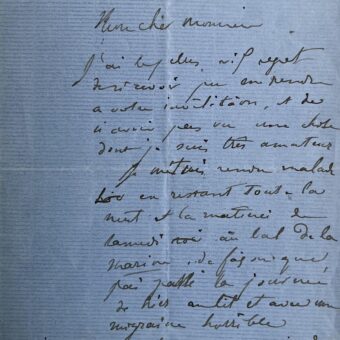 Mon cher Monsieur
J'ai le plus vif regret
de n'avoir pu me rendre
a votre invitation, et de
n'avoir pas vu une chose
dont je suis très amateur
Je m'étais rendu malade
en restant toute la
nuit et la matinée de
samedi au bal de la
marine, de façon que
j'ai passé la journée
de hier au lit et avec une
migraine horrible